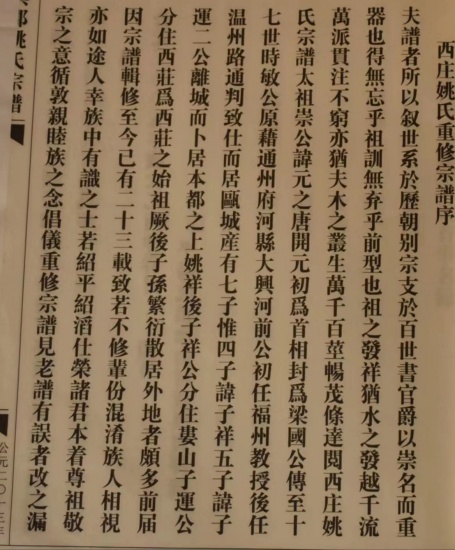 西庄姚氏重修宗譜序
夫譜者所以叙世系於歷朝別宗支於百世書官爵以崇名而重
器也得無忘乎祖訓無弃乎前型也祖之發祥猶水之發越千流
萬派貫注不窮亦猶夫木之叢生萬千百莖暢茂條達閲西庄姚
氏宗譜太祖崇公諱元之唐開元初爲首相封爲梁國公傳至十
七世時敏公原藉通州府河縣大興河前公初任福州教授後任
温州路通判致仕而居甌城産有七子惟四子諱子祥五子諱子
運二公離城而卜居本都之上姚祥後子祥公分住婁山子運公
分住西莊爲西莊之始祖厥後子孫繁衍散居外地者頗多前届
因宗譜輯修至今己有二十三載致若不修輩份混淆族人相視
亦如途人幸族中有識之士若紹平紹滔仕榮諸君本着尊祖敬
宗之意循敦親睦族之念倡儀重修宗譜見老譜有誤者改之漏
郡姚氏宗譜
公元二〇一三年